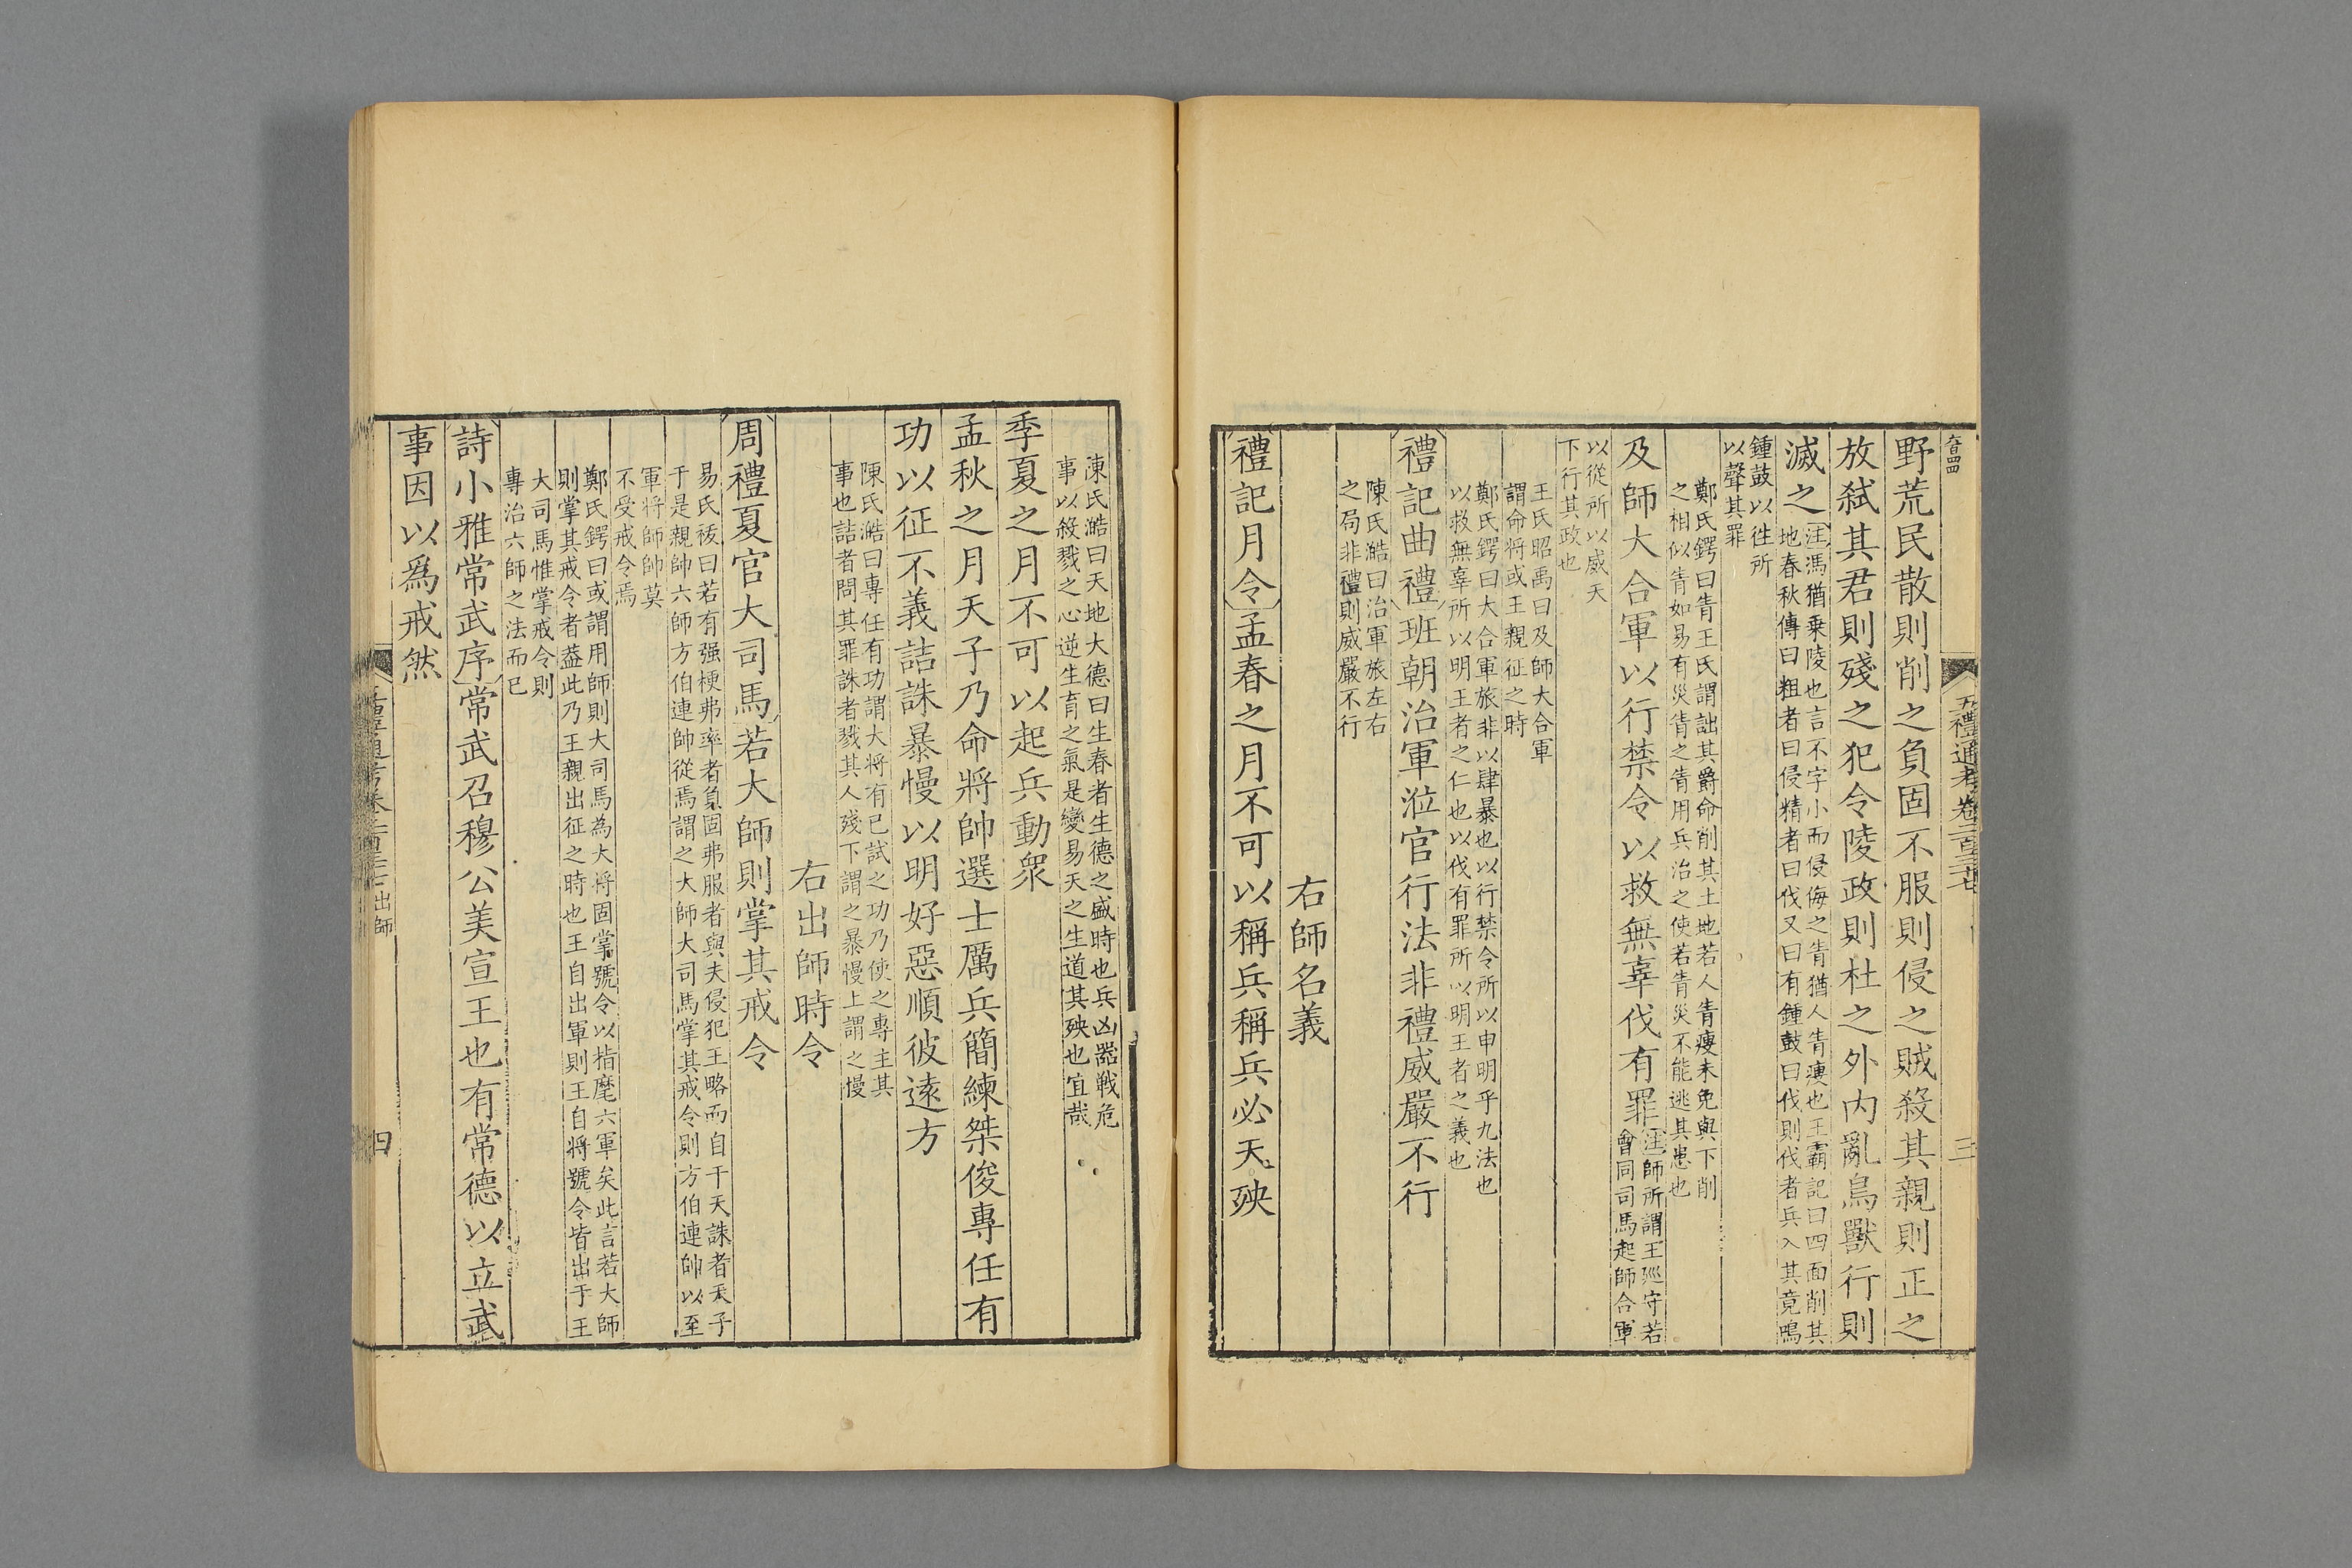 五禮通考卷二百三十七
三
野荒民散則削之負固不服則侵之賊殺其親則正之
放弒其君則殘之犯令陵政則杜之外內亂鳥獸行則
滅之注馮猶乘陵也言不字小而侵侮之眚猶人眚瘦也王霸記曰四面削其
地春秋傳曰粗者曰侵精者曰伐又曰有鍾鼓曰伐則伐者兵入其竟鳴
鍾鼓以徃所
以聲其罪
鄭氏鍔曰眚王氏謂詘其爵命削其土地若人眚瘦未免與下削
之相似眚如易有災眚之眚用兵治之使若眚災不能逃其患也
及師大合軍以行禁令以救無辜伐有罪注師所謂王廵守若
會同司馬起師合軍
以從所以威天
下行其政也
王氏昭禹曰及師大合軍
謂命將或王親征之時
鄭氏鍔曰大合軍旅非以肆暴也以行禁令所以申明乎九法也
以救無辜所以明王者之仁也以伐有罪所以明王者之義也
禮記曲禮班朝治軍涖官行法非禮威嚴不行
陳氏澔曰治軍旅左右
之局非禮則威嚴不行
右師名義
禮記月令孟春之月不可以稱兵稱兵必天殃
陳氏澔曰天地大德曰生春者生德之盛時也兵凶器戰危
事以殺戮之心逆生育之氣是變易天之生道其殃也宜哉
季夏之月不可以起兵動衆
孟秋之月天子乃命將帥選士厲兵簡練桀俊專任有
功以征不義詰誅暴慢以明好惡順彼遠方
陳氏澔曰專任有功謂大將有已試之功乃使之專主其
事也詰者問其罪誅者戮其人殘下謂之暴慢上謂之慢
右出師時令
周禮夏官大司馬若大師則掌其戒令
易氏祓曰若有强梗弗率者負固弗服者與夫侵犯王略而自干天誅者天子
于是親帥六師方伯連帥從焉謂之大師大司馬掌其戒令則方伯連帥以至
軍將師帥莫
不受戒令焉
鄭氏鍔曰或謂用師則大司馬為大將固掌號令以指麾六軍矣此言若大師
則掌其戒令者葢此乃王親出征之時也王自出軍則王自將號令皆出于王
大司馬惟掌戒令則
專治六師之法而已
詩小雅常武序常武召穆公美宣王也有常德以立武
事因以爲戒然
出師
四